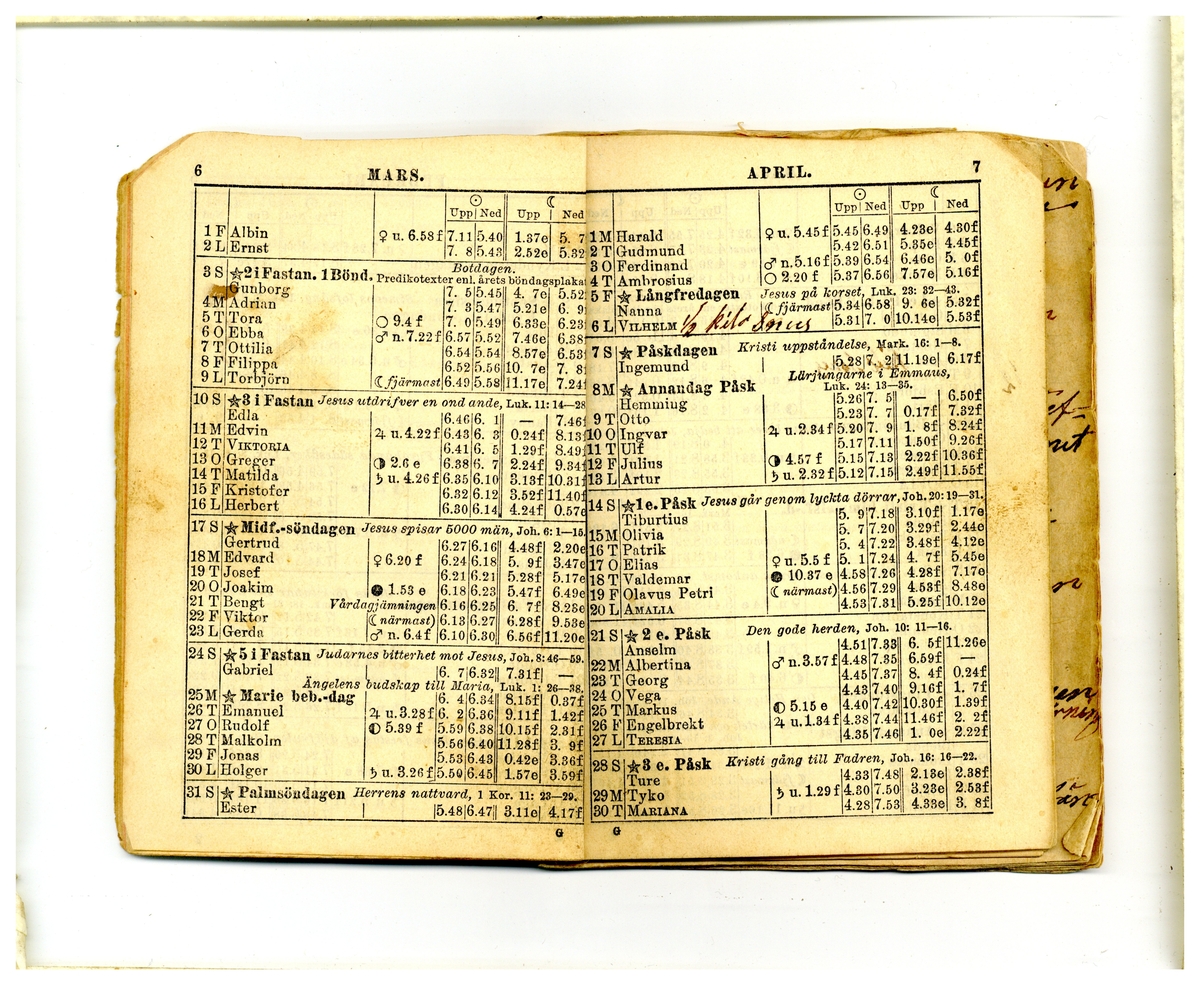 6
MARS.
☉ ☾
Upp Ned Upp Ned
1 F Albin ♀ u. 6.58 f 7.11 5.40 1.37e 5. 7
2 L Ernst 7. 8 5.43 2.52e 5.32
3 S ★2 i Fastan. 1 Bönd. Botdagen.
Predikotexter enl. årets böndagsplakat
Gunborg 7. 5 5.45 4. 7e 5.52
4 M Adrian 7. 3 5.47 5.21e 6. 9
5 T Tora ○ 9.4 f 7. 0 5.49 6.33e 6.23
6 O Ebba ♂ n. 7.22 f 6.57 5.52 7.46e 6.38
7 T Ottilia 6.54 5.54 8.57e 6.53
8 F Filippa 6.52 5.56 10. 7e 7. 8
9 L Torbjörn ☾ fjärmast 6.49 5.58 11.17e 7.24f
10 S ★3 i Fastan Jesus utdrifver en ond ande, Luk. 11: 14—28
Edla 6.46 6. 1 — 7.46f
11 M Edvin ♃ u. 4.22 f 6.43 6. 3 0.24f 8.13
12 T VIKTORIA 6.41 6. 5 1.29f 8.49
13 O Greger ◑ 2.6 e 6.38 6. 7 2.24f 9.34f
14 T Matilda ♄ u. 4.26 f 6.35 6.10 3.13f 10.31f
15 F Kristofer 6.32 6.12 3.52f 11.40f
16 L Herbert 6.30 6.14 4.24f 0.57e
17 S ★ Midf.-söndagen Jesus spisar 5000 män, Joh. 6: 1—15.
Gertrud 6.27 6.16 4.48f 2.20e
18 M Edvard ♀ 6.20 f 6.24 6.18 5. 9f 3.47e
19 T Josef 6.21 6.21 5.28f 5.17e
20 O Joakim ● 1.53 e 6.18 6.23 5.47f 6.49e
21 T Bengt Vårdagjämningen 6.16 6.25 6. 7f 8.23e
22 F Viktor ☾ närmast) 6.13 6.27 6.28f 9.53e
23 L Gerda ♂ n. 6.4 f 6.10 6.30 6.56f 11.20e
24 S ★5 i Fastan Judarnes bitterhet mot Jesus, Joh. 8: 46—59.
Gabriel 6. 7 6.32 7.31f —
Ängelens budskap till Maria, Luk. 1: 26—38.
25 M ★ Marie beb.-dag 6. 4 6.34 8.15f 0.37f
26 T Emanuel ♃ u. 3.28 f 6. 2 6.36 9.11f 1.42f
27 O Rudolf ◐ 5.39 f 5.59 6.38 10.15f 2.31f
28 T Malkolm 5.56 6.40 11.28f 3. 9f
29 F Jonas 5.53 6.43 0.42e 3.36f
30 L Holger ♄ u. 3.26 f 5.50 6.45 1.57e 3.59f
31 S ★ Palmsöndagen Herrens nattvard, 1 Kor. 11: 23—29.
Ester 5.48 6.47 3.11e 4.17f
G
APRIL.
7
☉ ☾
Upp Ned Upp Ned
1 M Harald ♀ u. 5.45 f 5.45 6.49 4.23e 4.30f
2 T Gudmund 5.42 6.51 5.35e 4.45f
3 O Ferdinand ♂ n. 5.16 f 5.39 6.54 6.46e 5. 0f
4 T Ambrosius ○ 2.20 f 5.37 6.56 7.57e 5.16f
5 F ★ Långfredagen Jesus på korset, Luk. 23: 32—43.
Nanna ☾ fjärmast 5.34 6.58 9. 6e 5.32f
6 L VILHELM ½ kilo Snus 5.31 7. 0 10.14e 5.53f
7 S ★ Påskdagen Kristi uppståndelse, Mark. 16: 1—8.
Ingemund 5.28 7. 2 11.19e 6.17f
Lärjungarne i Emmaus,
8 M ★ Annandag Påsk Luk. 24: 13—35.
Hemming 5.26 7. 5 — 6.50f
9 T Otto 5.23 7. 7 0.17f 7.32f
10 O Ingvar ♃ u. 2.34 f 5.20 7. 9 1. 8f 8.24f
11 T Ulf 5.17 7.11 1.50f 9.26f
12 F Julius ◑ 4.57 f 5.15 7.13 2.22f 10.36f
13 L Artur ♄ u. 2.32 f 5.12 7.15 2.49f 11.55f
14 S ★1 e. Påsk Jesus går genom lyckta dörrar, Joh. 20: 19—31.
Tiburtius 5. 9 7.18 3.10f 1.17e
15 M Olivia 5. 7 7.20 3.29f 2.44e
16 T Patrik 5. 4 7.22 3.48f 4.12e
17 O Elias ♀ u. 5.5 f 5. 1 7.24 4. 7f 5.45e
18 T Valdemar ● 10.37 e 4.58 7.26 4.28f 7.17e
19 F Olavus Petri ☾ närmast) 4.56 7.29 4.53f 8.48e
20 L AMALIA 4.53 7.31 5.25f 10.12e
21 S ★ 2 e. Påsk Den gode herden, Joh. 10: 11—16.
Anselm 4.51 7.33 6. 5f 11.26e
22 M Albertina ♂ n. 3.57 f 4.48 7.35 6.59f —
23 T Georg 4.45 7.37 8. 4f 0.24f
24 O Vega 4.43 7.40 9.16f 1. 7f
25 T Markus ◐ 5.15 e 4.40 7.42 10.30f 1.39f
26 F Engelbrekt ♃ u. 1.34 f 4.38 7.44 11.46f 2. 2f
27 L TERESIA 4.35 7.46 1. 0e 2.22f
28 S ★3 e. Påsk Kristi gång till Fadren, Joh. 16: 16—22.
Ture 4.33 7.48 2.13e 2.38f
29 M Tyko ♄ u. 1.29 f 4.30 7.50 3.23e 2.53f
30 T MARIANA 4.28 7.53 4.33e 3. 8f
G